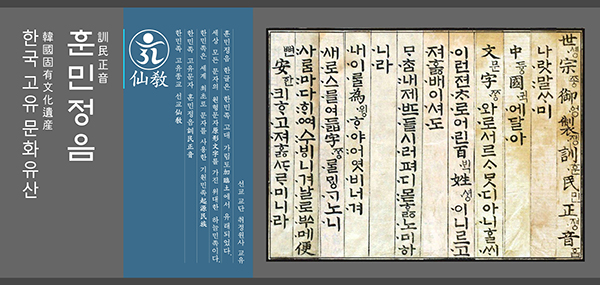 訓民正音
훈민정음
韓國固有文化遺産
한국 고유 문화유산
仙敎
한민족 고유종교 선교仙敎
한민족 고유문자 훈민정음訓民正音
한민족은 세계 최초로 문자를 사용한 기원민족起源民族
세상 모든 문자의 원형문자原形文字를 가진 위대한 하늘민족이다.
훈민정음 한글은 한민족 고대 가림토加臨土에서 유래되었다.
선교 교단 취정원사 교유
世宗御製訓民正音
나랏말ᄊᆞ미
中國에달아
文문字ᄍᆞᆼ와로서르ᄉᆞᄆᆞᆺ디아니ᄒᆞᆯᄊᆡ
이런젼ᄎᆞ로어린百姓이니르고
져홇배이셔도
ᄆᆞᄎᆞᆷ내제ᄠᅳ들시러펴디몯ᄒᆞᇙ노미하
니라
내이ᄅᆞᆯ為윙ᄒᆞ야어엿비너겨
새로스믈여듧字ᄍᆞᆼᄅᆞᆯᄆᆡᇰᄀᆞ노니
사ᄅᆞᆷ마다ᄒᆡᅇᅧ수ᄫᅵ니겨날로ᄡᅮ메便
뼌安한킈ᄒᆞ고져ᄒᆞᇙᄯᆞᄅᆞ미니라